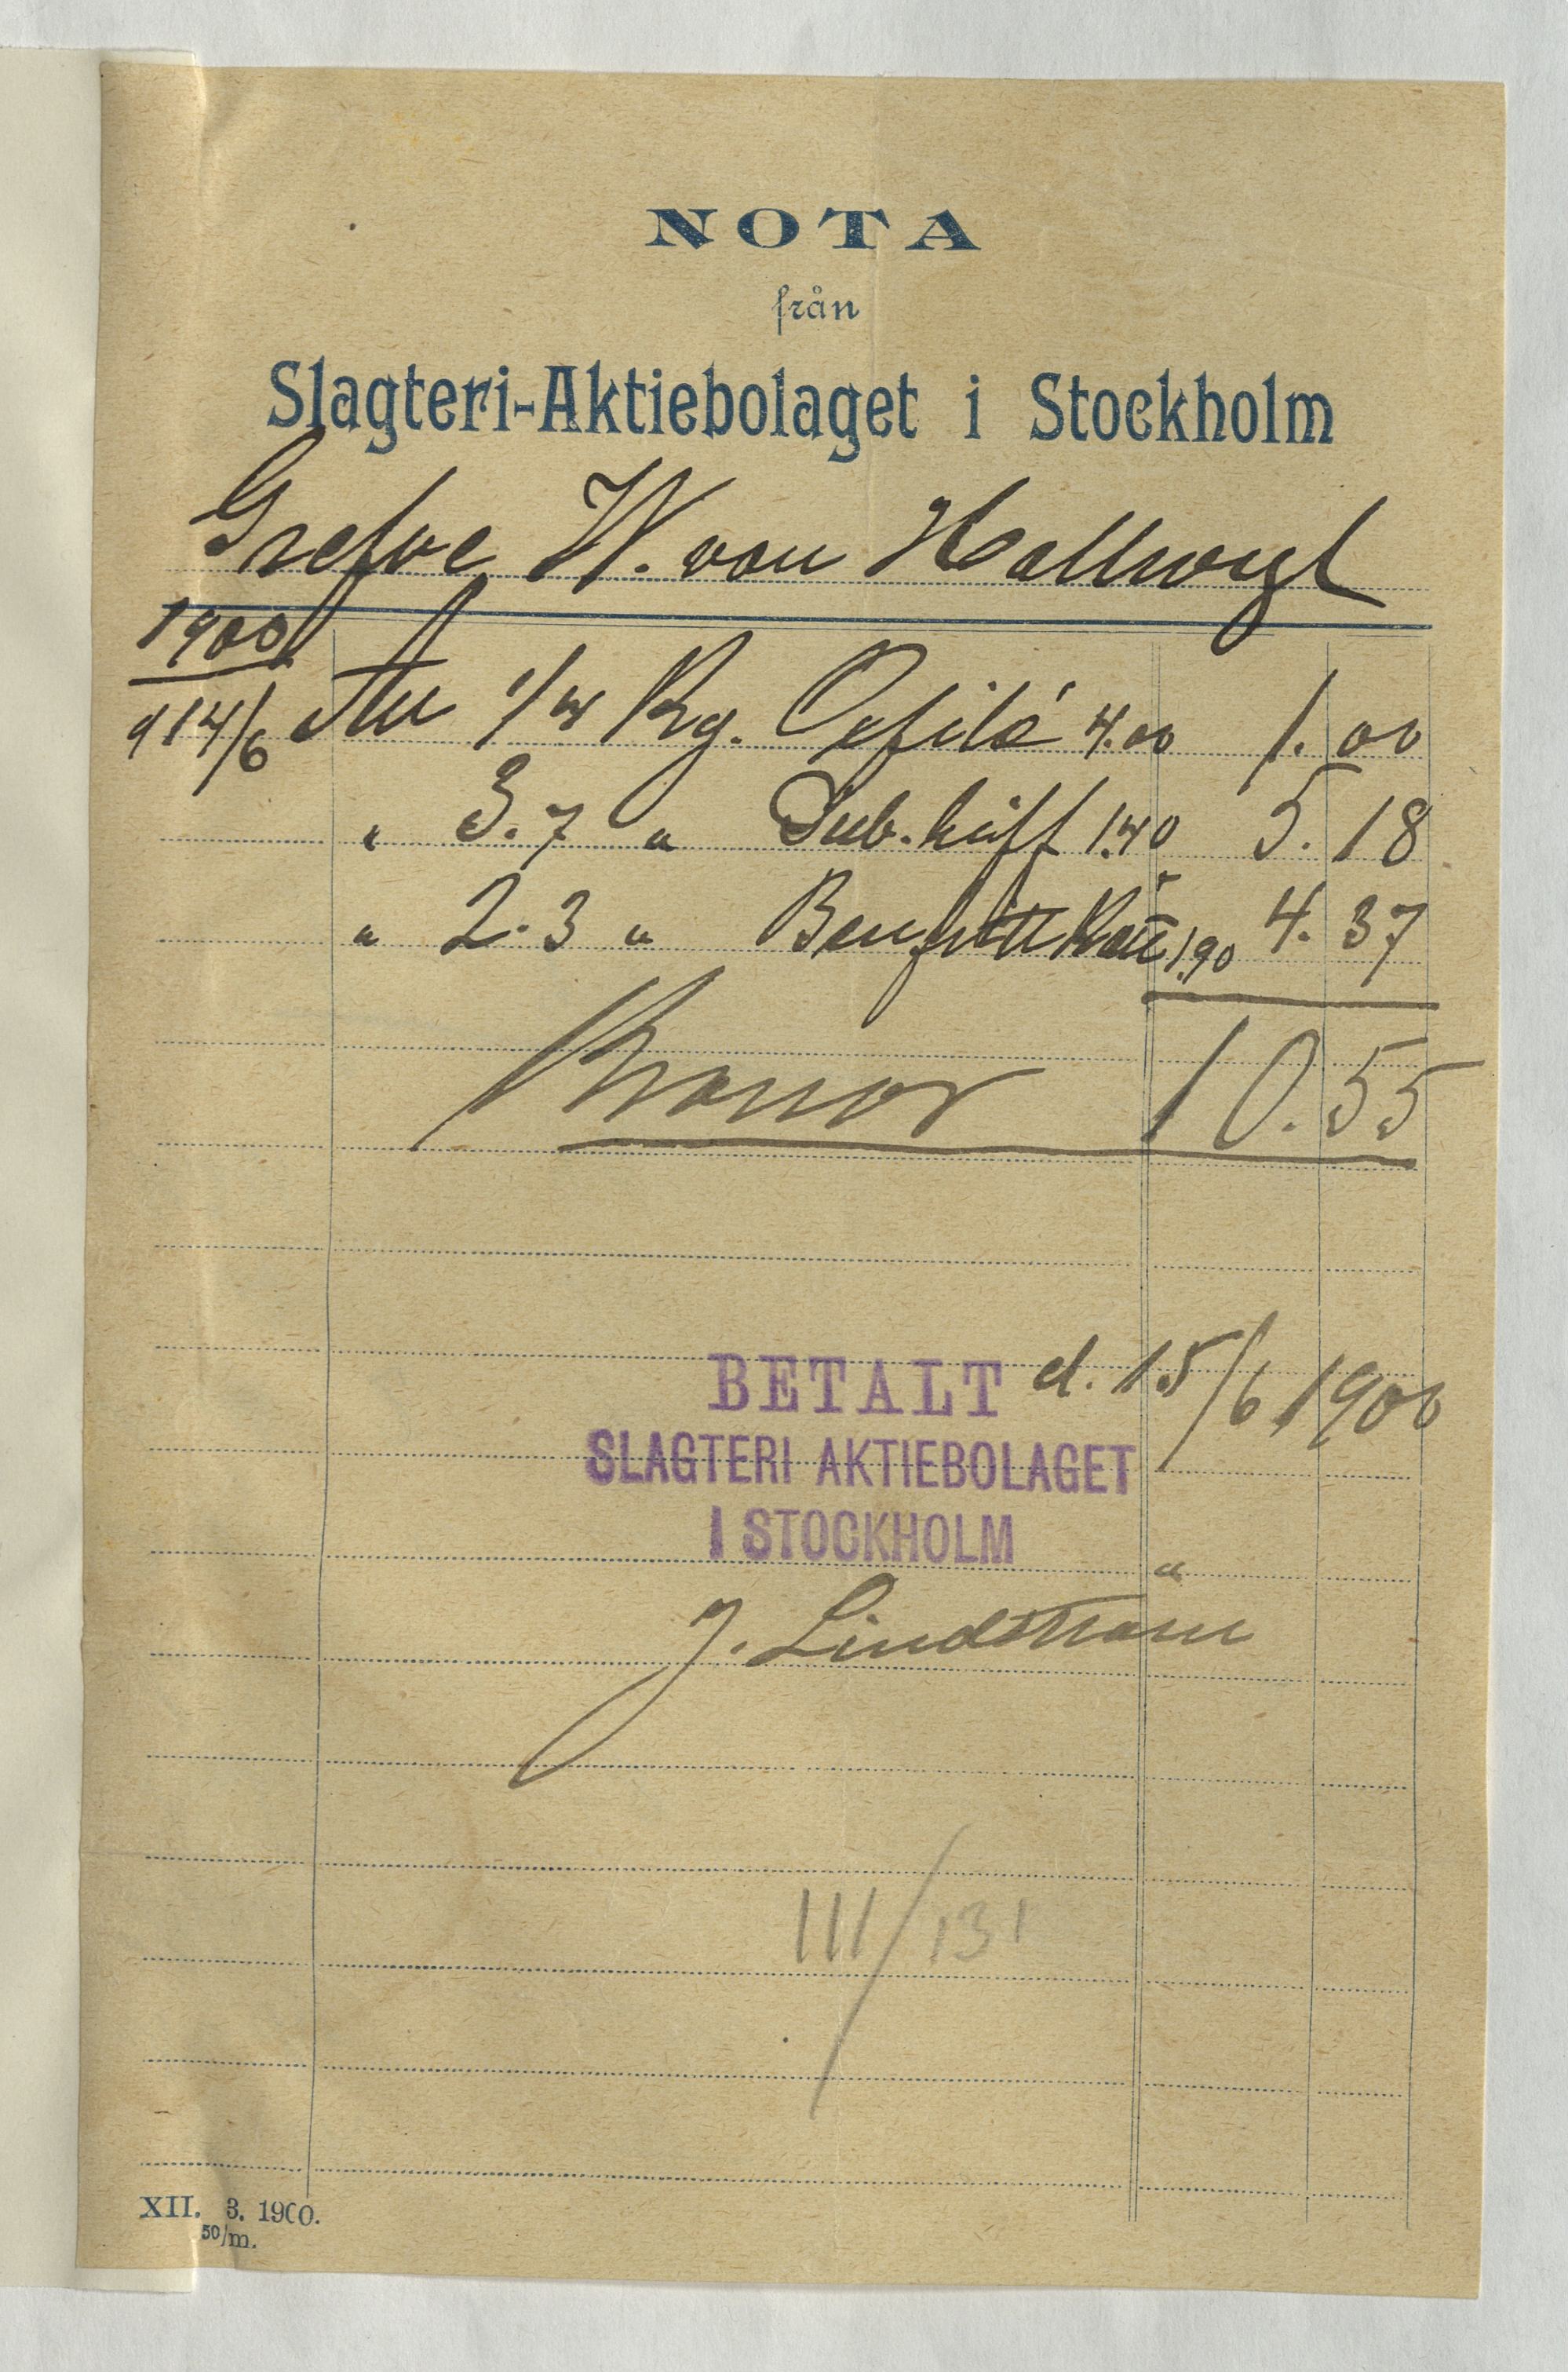 NOTA
från
Slagteri-Aktiebolaget i Stockholm
Grefve W. von Hallwyl
1900
d 14/6 An 1/4 Kg. Oxfilé 4.00 1.00
" 3.7 " Dub. biff 1.40 5.18
" 2.3 " Benfritt 1.90 4.37
Kronor 10.55
BETALT d. 15/6 1900
SLAGTERI AKTIEBOLAGET
I STOCKHOLM
J. Lindström
III/131
XII. 3. 1900.
50/m.